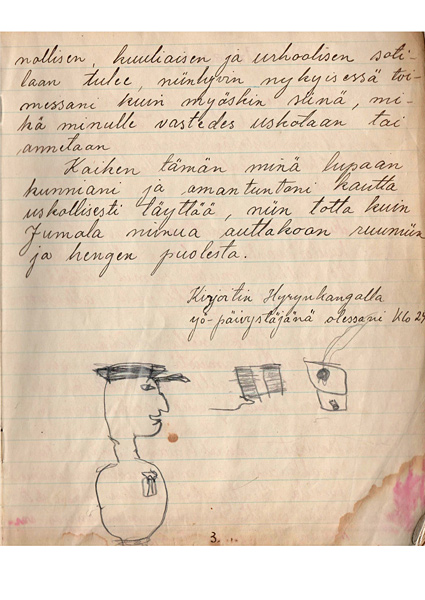 nollisen, kuuliaisen ja urhoolisen soti-
laan tulee, niinhyvin nykyisessä toi-
messani kuin myöskin siinä, mi-
kä minulle vastedes uskotaan tai
annetaan
Kaiken tämän minä lupaan
kunniani ja omantuntoni kautta
uskollisesti täyttää, niin totta kuin
Jumala minua auttakoon ruumiin
ja hengen puolesta.
Kirjoitin Hyrynkangalla
yö-päivystäjänä olessani Klo 24
3.